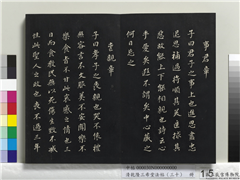 事君章
子曰君子之事上也進思盡忠
退思補過將順其美匡救其
惡故上下能相親也詩云心
乎愛矣遐不謂矣中心藏之
何日忘之
喪親章
子曰孝子之喪親也哭不偯禮
無容言不文服美不安聞樂不
樂食旨不甘此哀慼之情也三
日而食教民無以死傷生毀不滅
性此聖人之政也喪不過三年